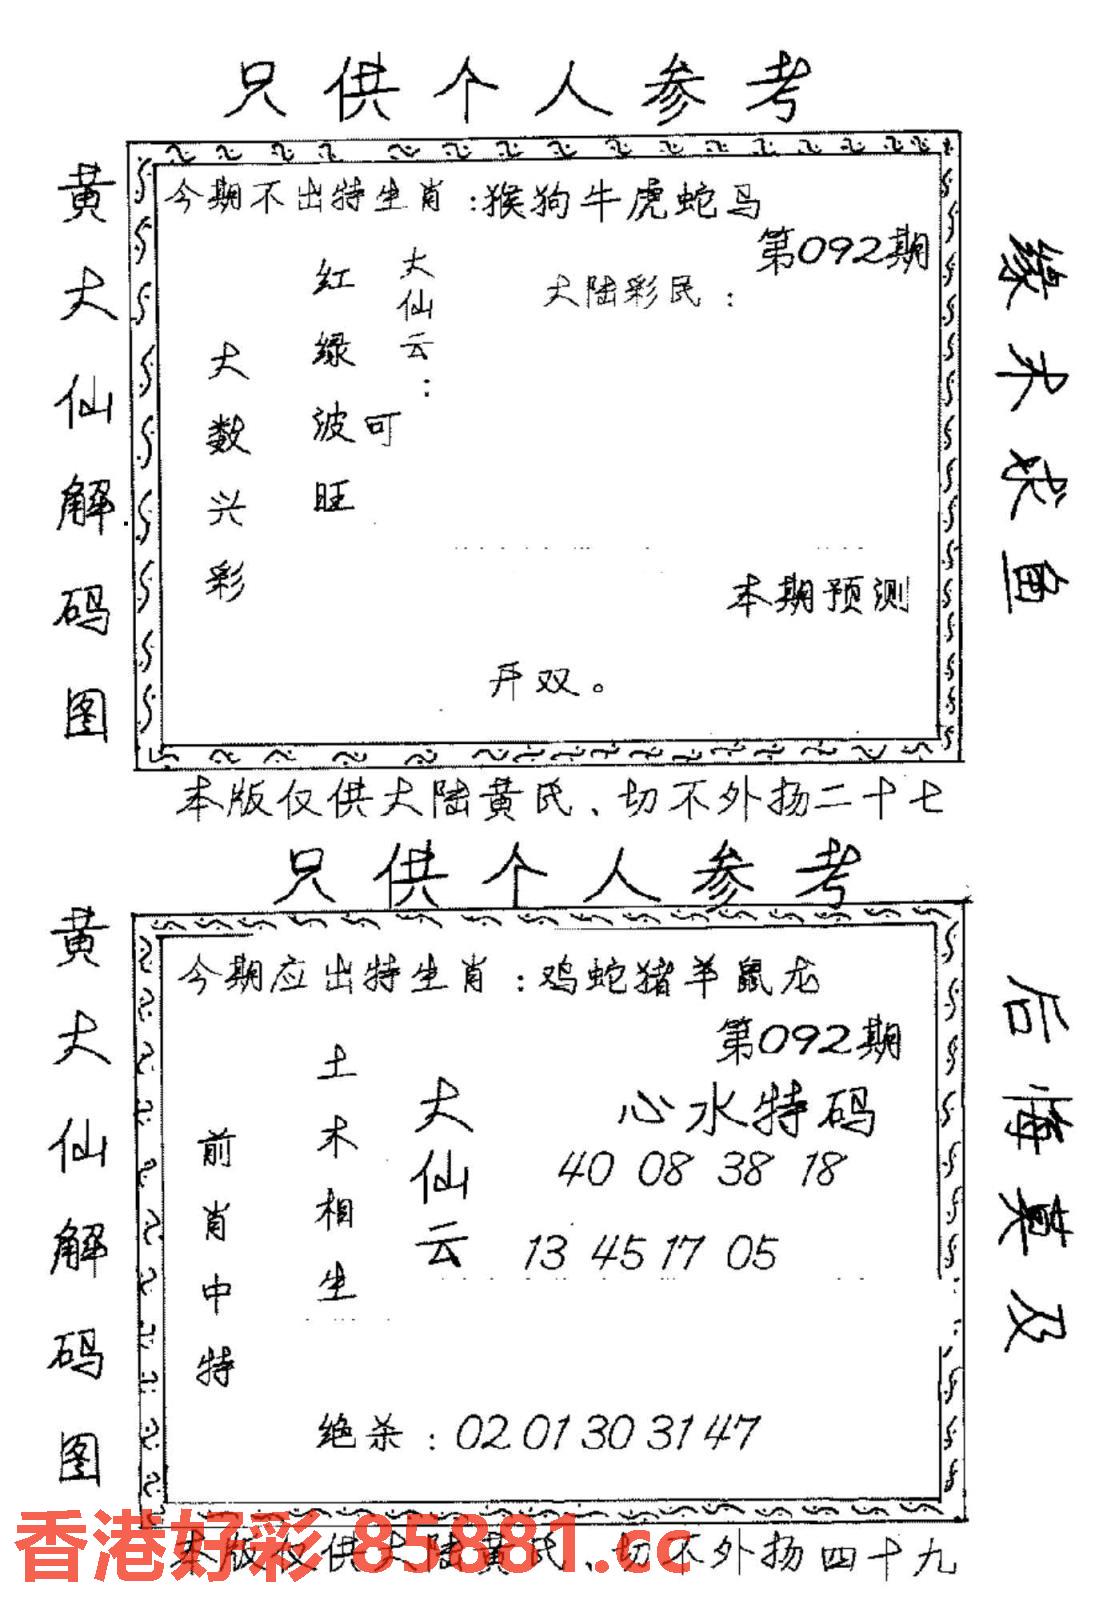 只供个人参考
黄大仙解码图
今期不出特生肖:猴狗牛虎蛇马
第092期
大陆彩民:
大仙云:
红绿波可旺
大数兴彩
本期预测
开双。
缘木求鱼
本版仅供大陆黄氏、切不外扬二十七
只供个人参考
黄大仙解码图
今期应出特生肖:鸡蛇猪羊鼠龙
第092期
心水特码
40 08 38 18
13 45 17 05
大仙云
土木相生
前肖中特
绝杀:02 01 30 31 47
后悔莫及
本版仅供大陆黄氏、切不外扬四十九
香港好彩 85881.cc